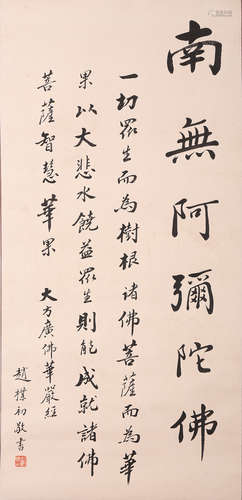 南無阿彌陀佛
一切眾生而為樹根諸佛菩薩而為華
果以大悲水饒益眾生則能成就諸佛
菩薩智慧華果 大方廣佛華嚴經
趙樸初敬書